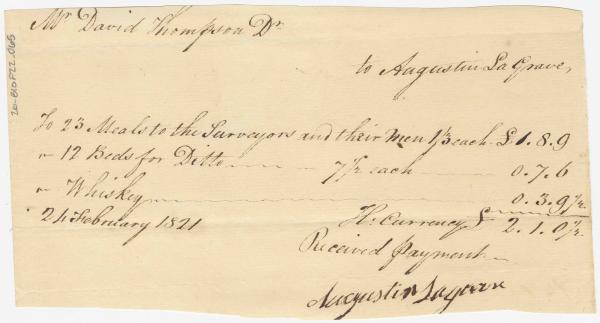 Mr David Thompson Dr
to Augustin LaGrave,
To 23 Meals to the Surveyors and their Men 1/3 each £ 1.8.9
" 12 Beds for Ditto 7½ each 0.7.6
" Whiskey 0.3.9½
24 February 1821 H. Currency £ 2.1.0½
Received Payment
Augustin Lagrave
20-B10F22.065